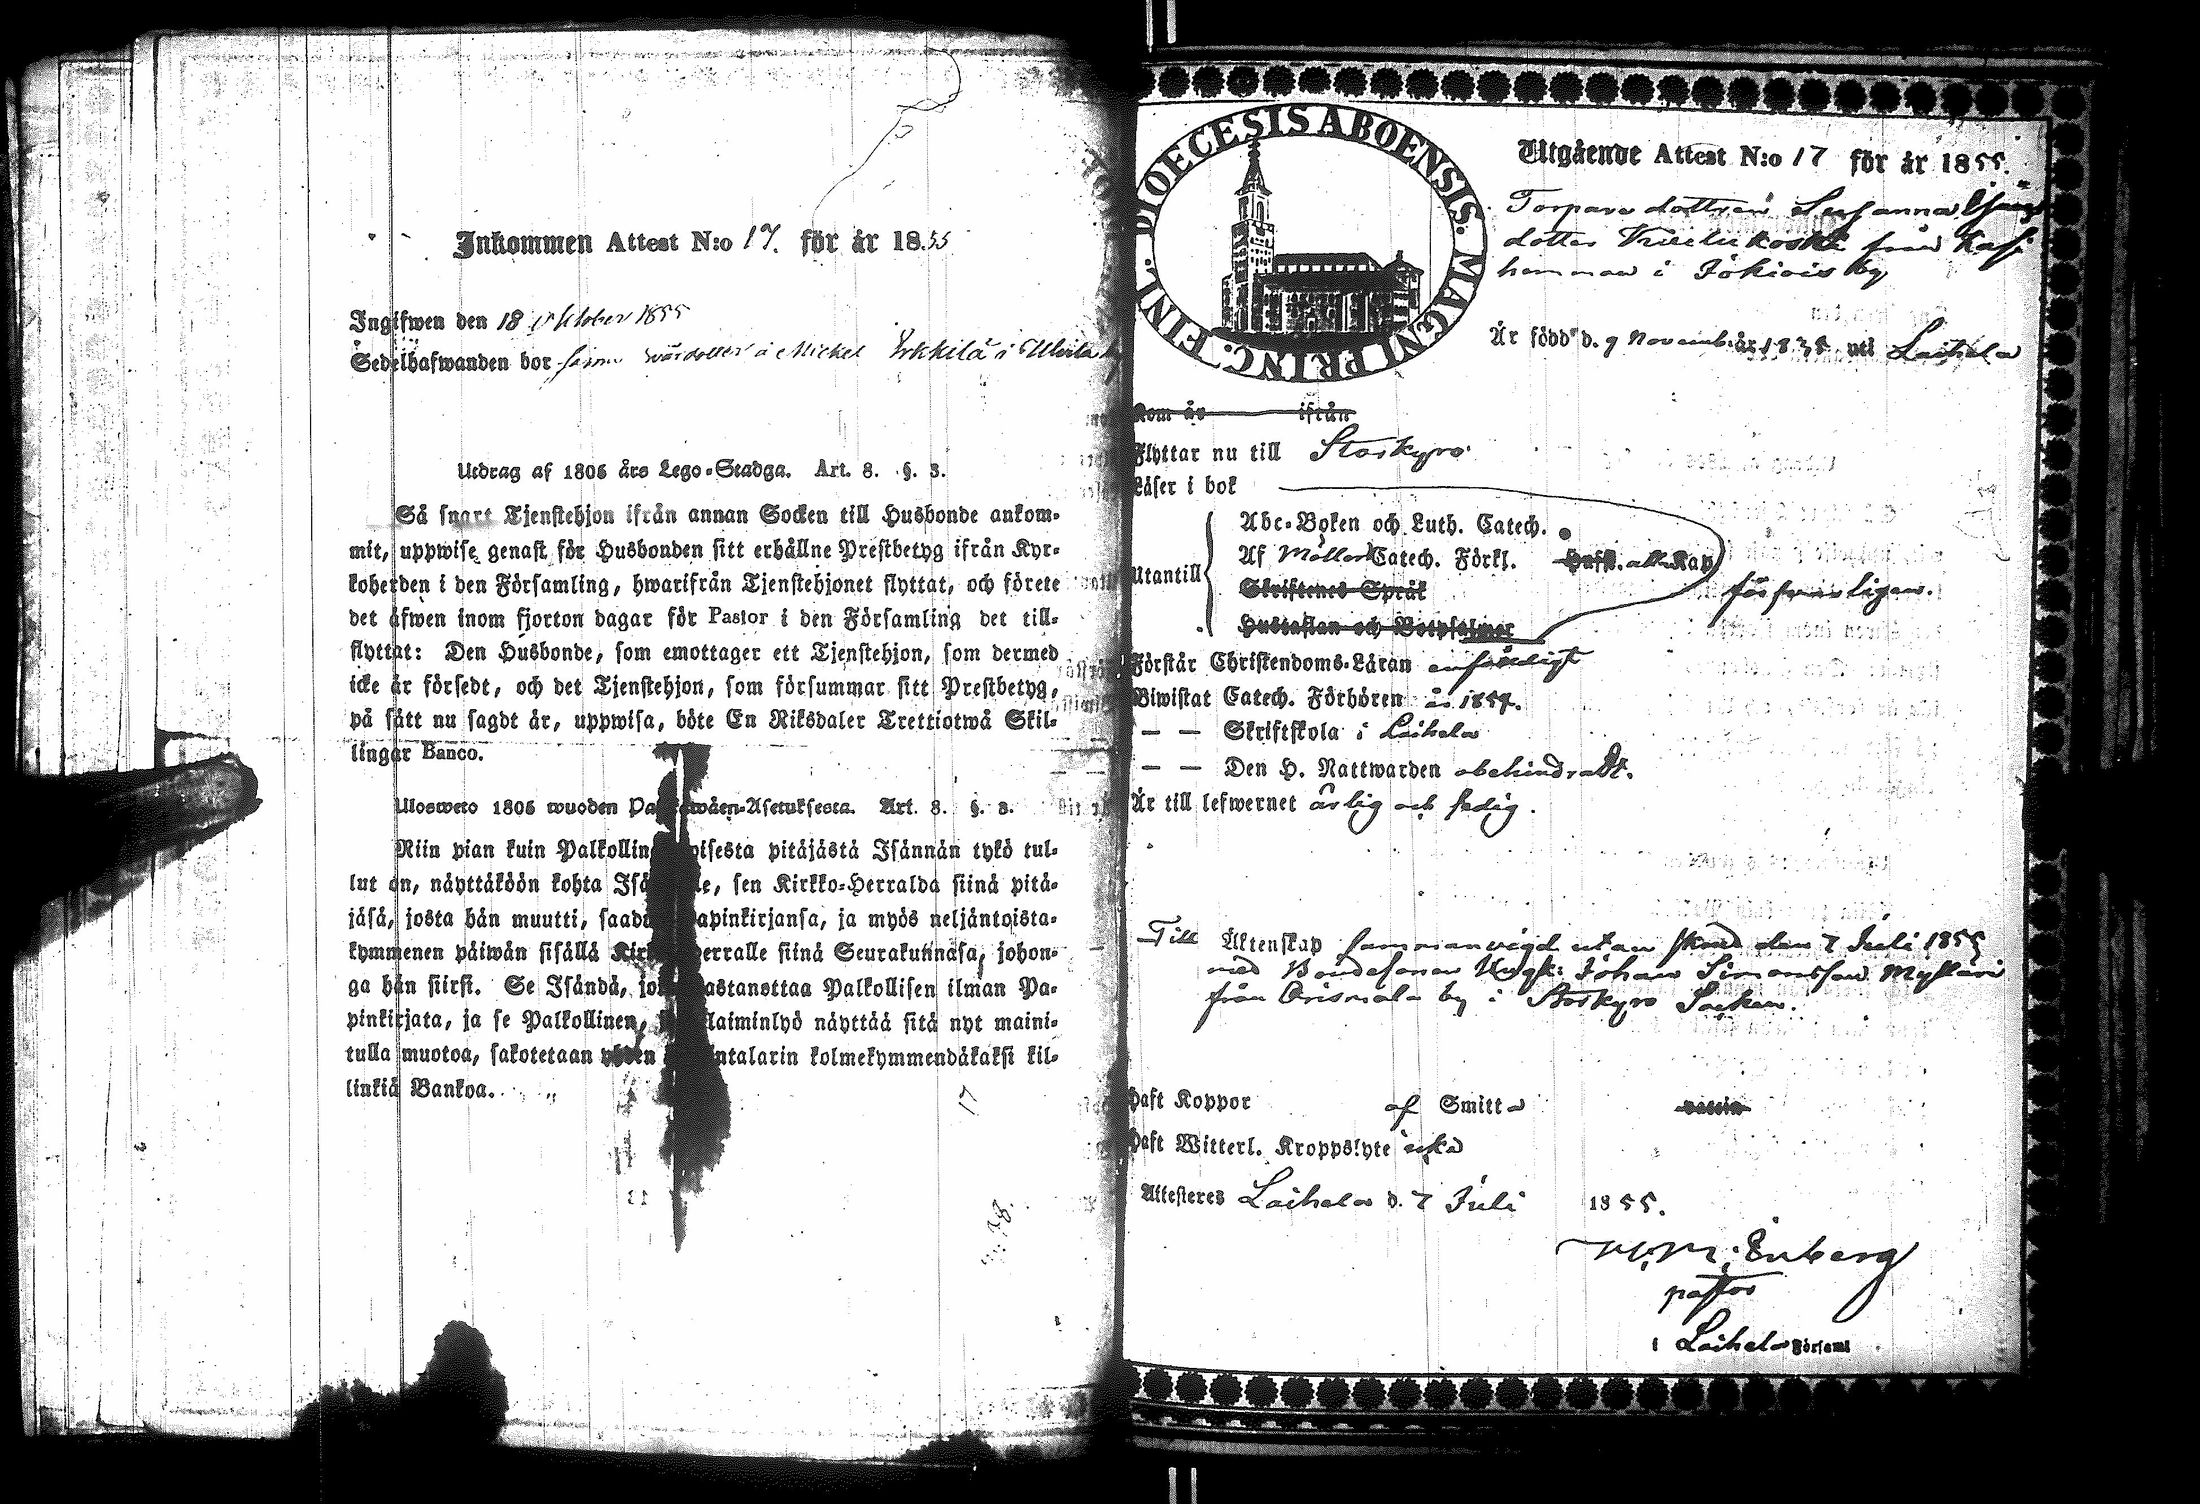 Inkommen Attest N:o 17. för år 1855
Ingifwen den 18 Oktober 1855
Sedelhafwanden bor såsom värdotter å Michel Erkkilä i Ulvila
Utdrag af 1805 års Lego-Stadga. Art. 8. §. 3.
Så snart Tjenstehjon ifrån annan Socken till Husbonde ankom-
mit, uppwise genast för Husbonden sitt erhållne Prestbetyg ifrån Kyr-
koherden i den Församling, hwarifrån Tjenstehjonet flyttat, och förete
det äfwen inom fjorton dagar för Pastor i den Församling det till-
flyttat: Den Husbonde, som emottager ett Tjenstehjon, som dermed
icke är försedt, och det Tjenstehjon, som försummar sitt Prestbetyg,
på sätt nu sagdt är, uppwisa, böte En Riksdaler Trettiotwå Skil-
lingar Banco.
Ulosweto 1805 wuoden Asetuksesta. Art. 8. §. 3.
Niin pian kuin pitäjästä Isännän tykö tul-
lut on, näyttäköön kohta sen Kirkko-Herralda siinä pitä-
jäsä, josta hän muutti, ja myös neljäntoista-
kymmenen päiwän sisällä siinä Seurakunnasa, johon-
ga hän siirsi. Se Isändä, Palkollisen ilman Pa-
pinkirjata, ja se Palkollinen, näyttää sitä nyt maini-
tulla muotoa, sakotetaan yhden kolmekymmendäkaksi kil-
linkiä Bankoa.
17
DIOECESIS ABOENSIS. MAGNI PRINC. FINL.
Utgående Attest N:o 17 för år 1855.
Torpare dottren Susanna
dotter från
hemman i Jokiois by
Är född d. 9 November år 1835 uti Laihela
Kom år ifrån
Flyttar nu till Storkyro
Läser i bok
Abc-Boken och Luth. Catech.
Utantill
Af Catech. Förkl. Kap
Skriftenes Språk försvarligen.
Hustaflan och Botpsalmer
Förstår Christendoms-Läran enfaldigt
Biwistat Catech. Förhören år 1854.
— — Skriftskola i Laihela
— — Den H. Nattwarden obehindradt.
Är till lefwernet ärlig och sedig.
Till Äktenskap sammanvigd utan den 7 Juli 1855
med Bondesonen Johan Simonsson
från Orismala by i Storkyro Socken.
Haft Koppor af Smitta vaccin
Haft Witterl. Kroppslyte icke
Attesteres Laihela d. 7 Juli 1855.
Enberg
pastor
i Laihela Församl